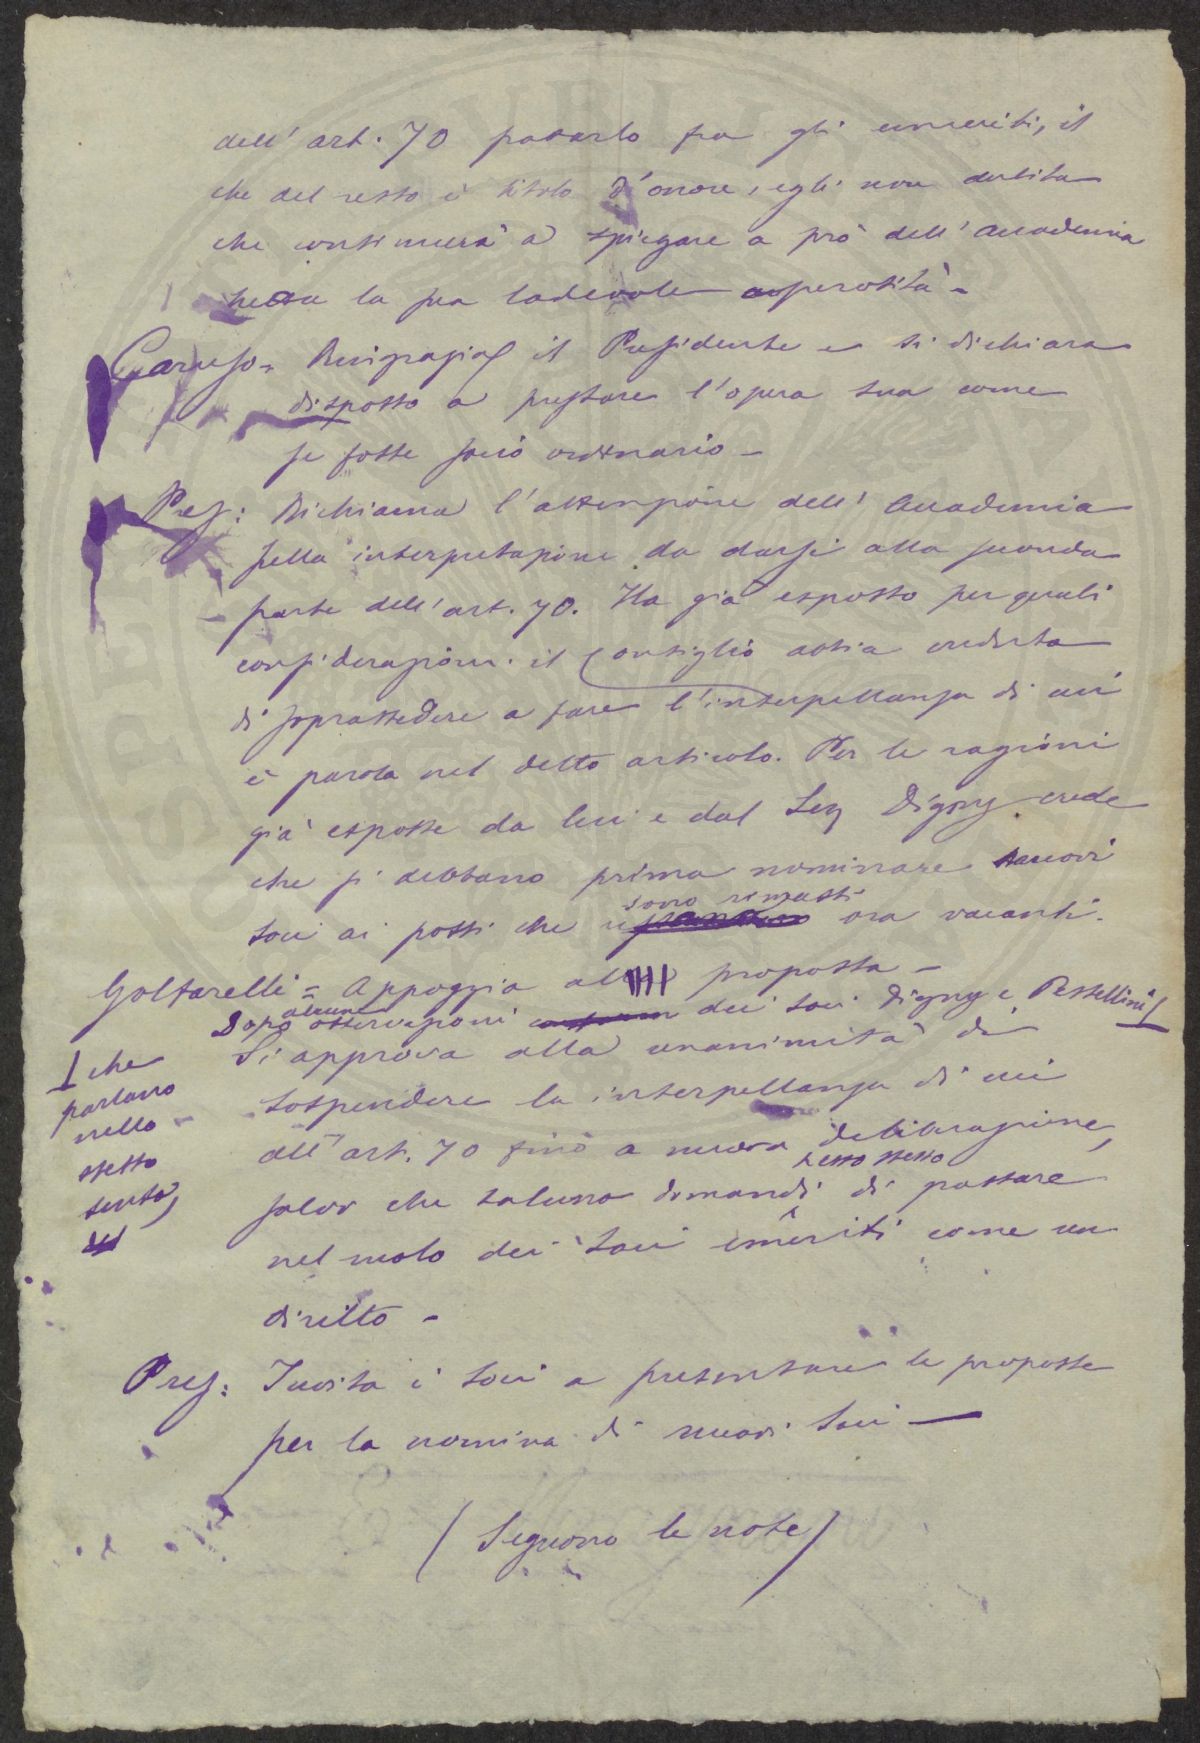 dell'art. 70 passarlo fra gli emeriti, il
che del resto è titolo d'onore, egli non dubita
che continuerà a spiegare a prò dell'Accademia
la sua lodevole operosità -
Caruso = Ringrazia il Presidente e si dichiara
disposto a prestare l'opera sua come
se fosse socio ordinario -
Pres: Richiama l'attenzione dell'Accademia
sulla interpretazione da darsi alla seconda
parte dell'art. 70. Ha già esposto per quali
considerazioni il Consiglio abbia creduto
di soprassedere a fare l'interpellanza di cui
è parola nel detto articolo. Per le ragioni
già esposte da lui e dal Digny crede
che si debbano prima nominare nuovi
sono rimasti
soci ai posti che ora vacanti.
Golfarelli = Appoggia proposta -
alcune
Dopo osservazioni dei soci Digny e Pestellini
Si approva alla unanimità di
che
parlano
nello
stesso
senso,
sospendere la interpellanza di cui
all'art. 70 fino a nuova deliberazione,
esso stesso
salvo che taluno domandi di passare
nel ruolo dei soci emeriti come un
diritto -
Pres: Invita i soci a presentare le proposte
per la nomina di nuovi soci —
(Seguono le note)